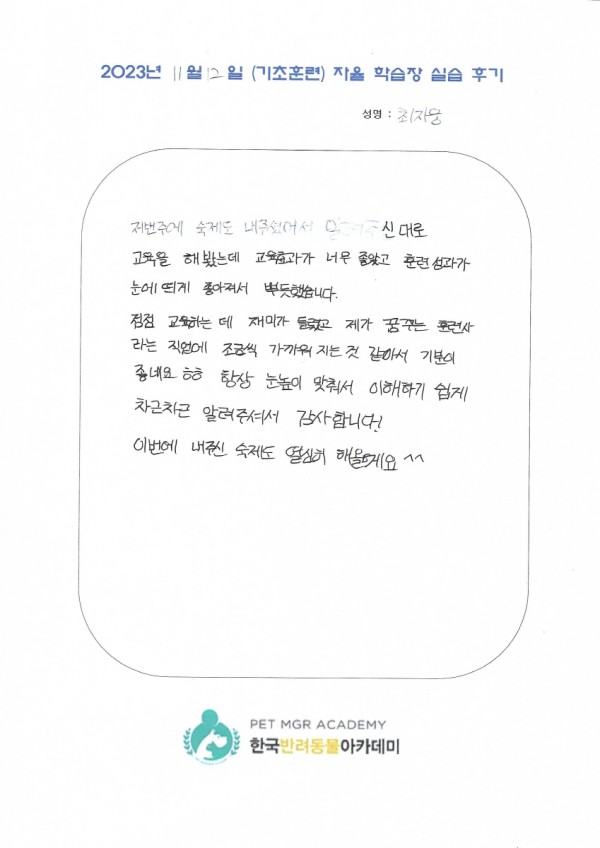 2023년 11월 12일 (기초훈련) 자율 학습장 실습 후기
성명 : 최지웅
저번주에 숙제도 내주셨어서 알려주신대로
교육을 해봤는데 교육효과가 너무 좋았고 훈련성과가
눈에 띄게 좋아져서 뿌듯했습니다.
점점 교육하는 데 재미가 들렸고 제가 꿈꾸는 훈련사
라는 직업에 조금씩 가까워 지는것 같아서 기분이
좋네요 ㅎㅎ 항상 눈높이 맞춰서 이해하기 쉽게
차근차근 알려주셔서 감사합니다!
이번에 내주신 숙제도 열심히 해올게요 ^^
PET MGR ACADEMY
한국반려동물아카데미